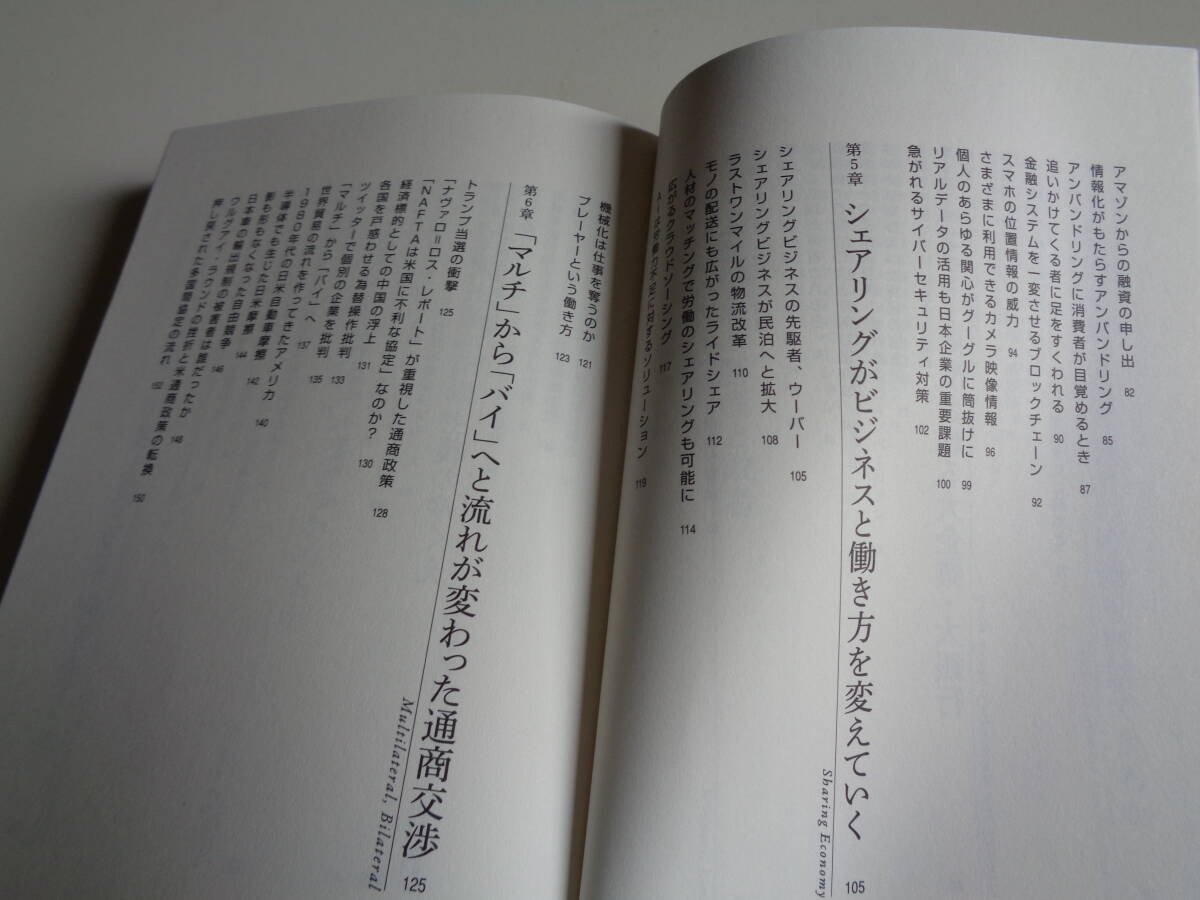 アマゾンからの融資の申し出 82
情報化がもたらすアンバンドリング 85
アンバンドリングに消費者が目覚めるとき 87
追いかけてくる者に足をすくわれる 90
金融システムを一変させるブロックチェーン 92
スマホの位置情報の威力 94
さまざまに利用できるカメラ映像情報 96
個人のあらゆる関心がグーグルに筒抜けに 99
リアルデータの活用も日本企業の重要課題 100
急がれるサイバーセキュリティ対策 102
第5章 シェアリングがビジネスと働き方を変えていく 105
Sharing Economy
シェアリングビジネスの先駆者、ウーバー 105
シェアリングビジネスが民泊へと拡大 108
ラストワンマイルの物流改革 110
モノの配送にも広がったライドシェア 112
人材のマッチングで労働のシェアリングも可能に 114
広がるクラウドソーシング 117
に対するソリューション 119
機械化は仕事を奪うのか 121
プレーヤーという働き方 123
第6章 「マルチ」から「バイ」へと流れが変わった通商交渉 125
Multilateral, Bilateral
トランプ当選の衝撃 125
「ナヴァロ=ロス・レポート」が重視した通商政策 128
「NAFTAは米国に不利な協定」なのか? 130
経済標的としての中国の浮上 131
各国を戸惑わせる為替操作批判 133
ツイッターで個別の企業を批判 135
「マルチ」から「バイ」へ 137
世界貿易の流れを作ってきたアメリカ 140
1980年代の日米自動車摩擦 142
半導体でも生じた日米摩擦 144
影も形もなくなった自由競争 146
日本車の輸出規制の被害者は誰だったか 148
ウルグアイ・ラウンドの挫折と米通商政策の転換 150
押し戻された多国間協定の流れ